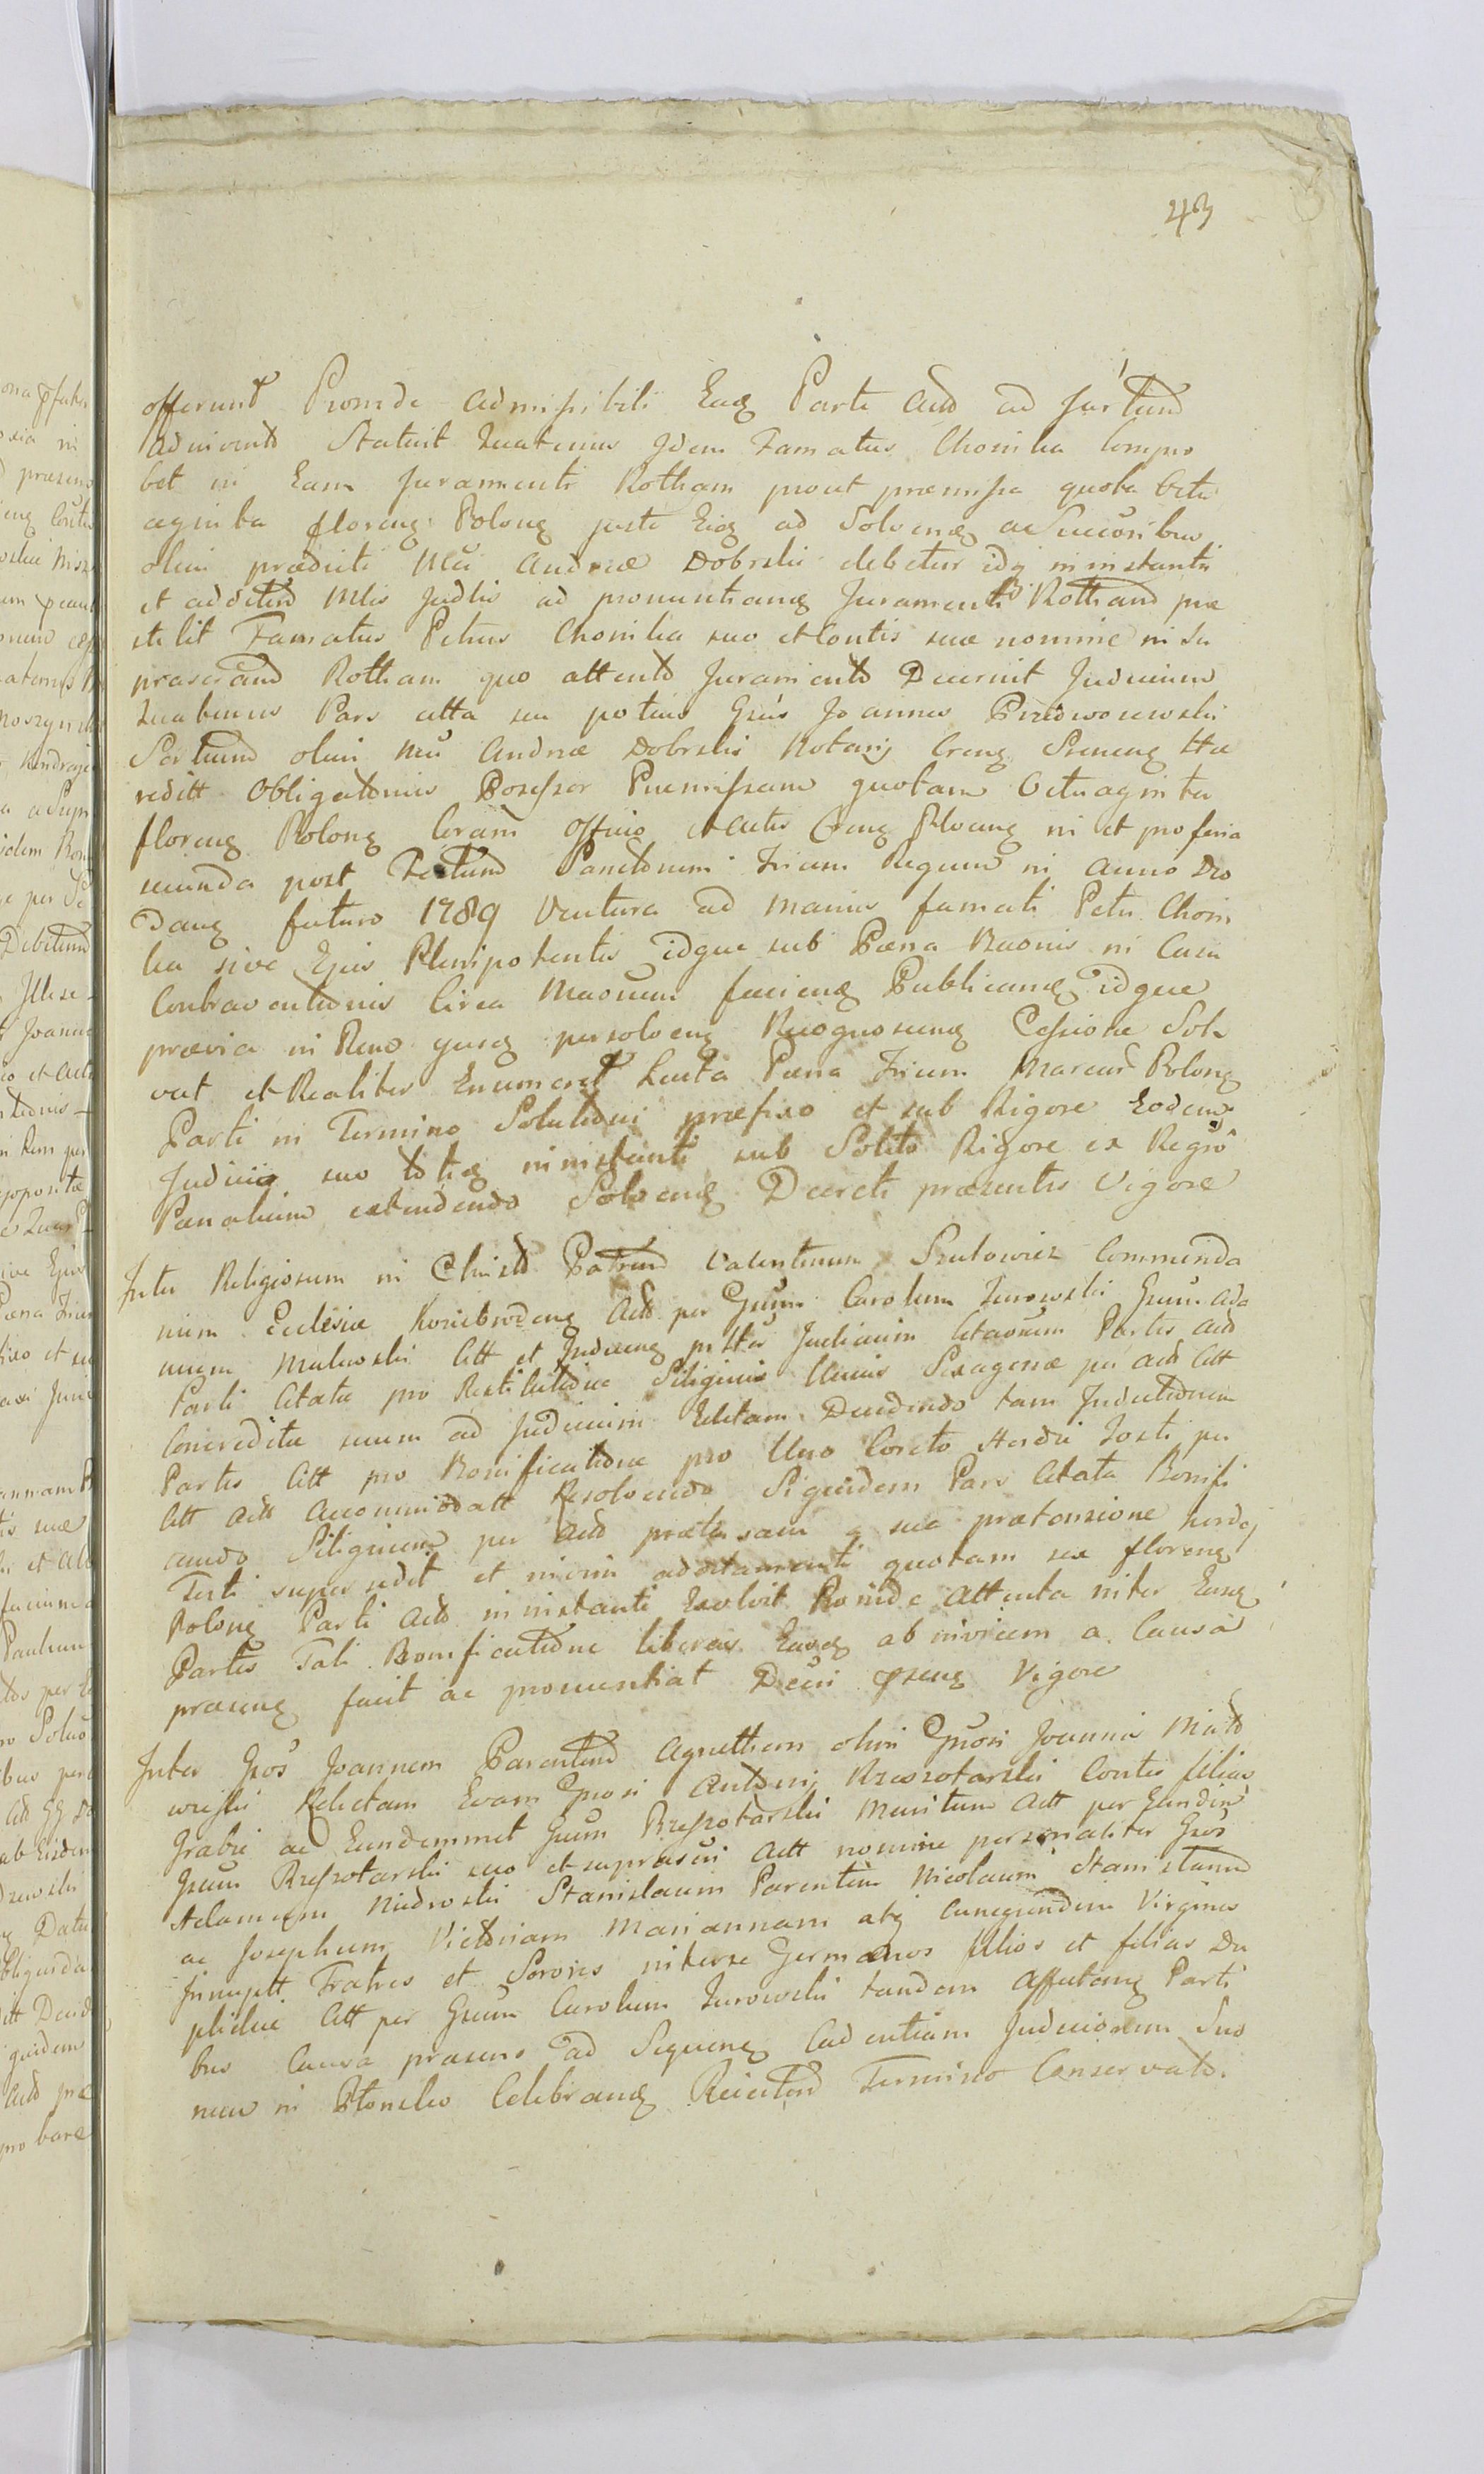 43
offerunt Proinde admissibili Eaq Parte Acto ad Jurtum
adinvento Statuit Quatenus Idem Famatus Choinka Compro
bet in Eam Juramenti Rotham prout præmissa quota Octu
aginta floreng Polong juste Eiq ad Solveng a Succoribus
olim prædicti Mci Andreæ Dobrski debetur idq in instanti
et ad dictum Mlis Judlis ad pronuntiang Juramenti Rotham præ
stitit Famatus Petrus Choinka suo et Contis suæ nomine in Su
prascram Rotham quo attento Juramento Decernit Judicium
Quatenus Pars citta seu potius Gsus Joannes Przedworowski
Sortium olim Mci Andreæ Dobrski Notarij Creng Sreneng Hæ
reditt Obligatorius Possessor Præmissam quotam Octuaginta
floreng Polong Coram Officio et Actis Creng Ploceng in et pro feria
secunda post Festum Sanctorum Trium Regum in Anno Dro
Dang futuro 1789 Ventura ad manus famati Petri Choin
ka sive Ejus Plenipotentis idque sub Pæna Bannis in Casu
Contraventionis Circa Maonem facieng Publicang idque
prævia in Rem quæq persolveng Recognosceng Cessione Sol
vat et Realiter Enumeret Lucta Pæna Trium Marcar Polong
Parti in Termino Solutioni præfixo et sub Rigore Eodem
Judicio suo totiq in instanti sub Solito Rigore ex Regro
Pænalium extendendo Solveng Decreti præsentis Vigore
Inter Religiosum in Christo Patrem Valentinum Szulowicz Commenda
rium Ecclesiæ Koziebrodeng Act per Gsum Carolum Zurowski Gsum Ada
mum Mulewski Citt et Induceng per Judicium Citaonem Partis Act
Parti Citatæ pro Restitutione Siliginis Unius Sexagenæ per Act Citt
Concreditæ suum ad Judicium Editam Decidendo tam Inductionem
Partis Citt pro Bonificatione pro Uno Coreto Hordei Tosti per
Citt Act Accommodatt Resolvendo Siquidem Pars Citata Bonifi
cando Siliginem per Act prætensam a sua prætensione hordej
Tosti supersedit et in vim adætamenti quotam sex floreng
Polong Parti Act in instanti Exolvit Proinde Attenta inter Easq
Partes Tali Bonificatione liberas Easq ab invicem a Causa
præseng facit ac pronuntiat Decri pseng Vigore
Inter Gsos Joannem Parentem Agnethem olim Gnosi Joannis Miło
wiejski Relictam Evam Gnosi Antonij Rzeszotarski Contes filias
Grabie ac Eundemmet Gsum Rzeszotarski Maritum Act per Eundem
Gsum Rzeszotarski suo et suprascri Act nomine personaliter Gsos
Adamum Niedrowski Stanislaum Parentem Nicolaum Stanislaum
ac Josephum Victoriam Mariannam atq Cunegundem Virgines
Innuptt Fratres et Sorores inter se Germanos filios et filias Du
plickie Citt per Gsum Carolum Zurowski tandem Affectang Parti
bus Causa præsens ad Sequeng Cadentiam Judiciorum Suo
rum in Płonsko Celebrang Rejectum Termino Conservato.